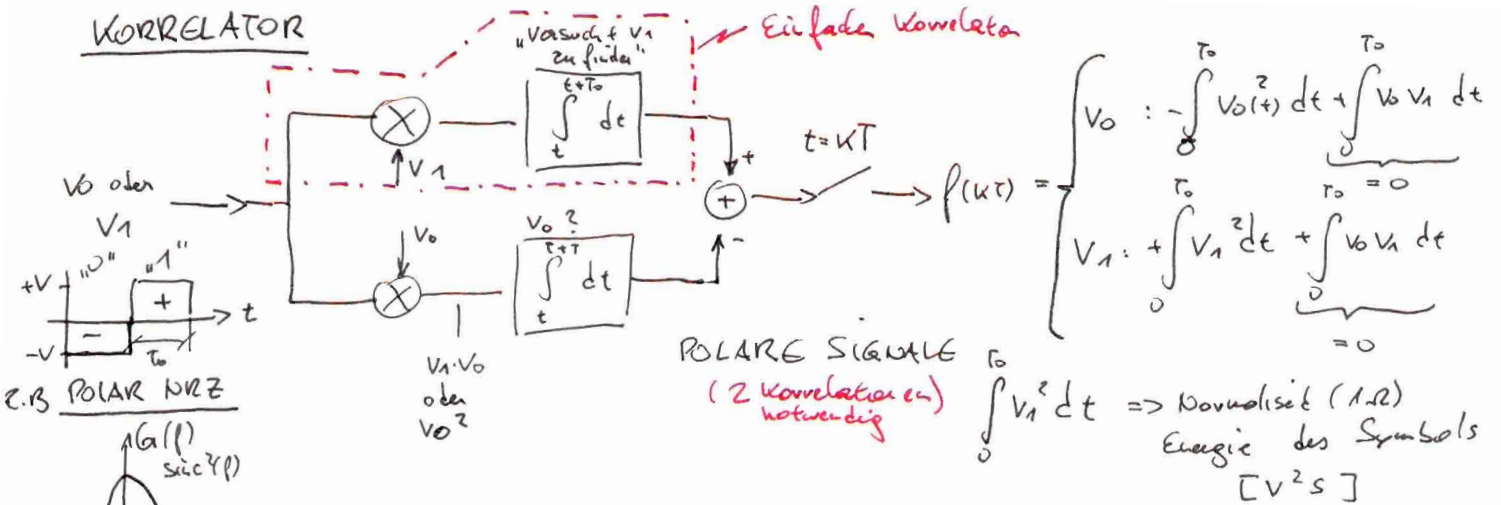 KORRELATOR
Einfacher Korrelator
"Versucht V1
zu finden"
t+T₀
∫ dt
t
V1
V0 oder
V1
+
t=KT
f(KT) =
V0 : -∫₀^T₀ V0(t)² dt + ∫₀^T₀ V0 V1 dt
= 0
V1 : +∫₀^T₀ V1² dt + ∫₀^T₀ V0 V1 dt
= 0
V0
V0 ?
t+T
∫ dt
t
-
V1·V0
oder
V0²
"0" "1"
+V
- +
t
-V
T₀
Z.B POLAR NRZ
G(f)
sinc²(f)
POLARE SIGNALE
(2 Korrelatoren)
notwendig
∫₀^T₀ V1² dt => Normalisiert (1Ω)
Energie des Symbols
[V²s]